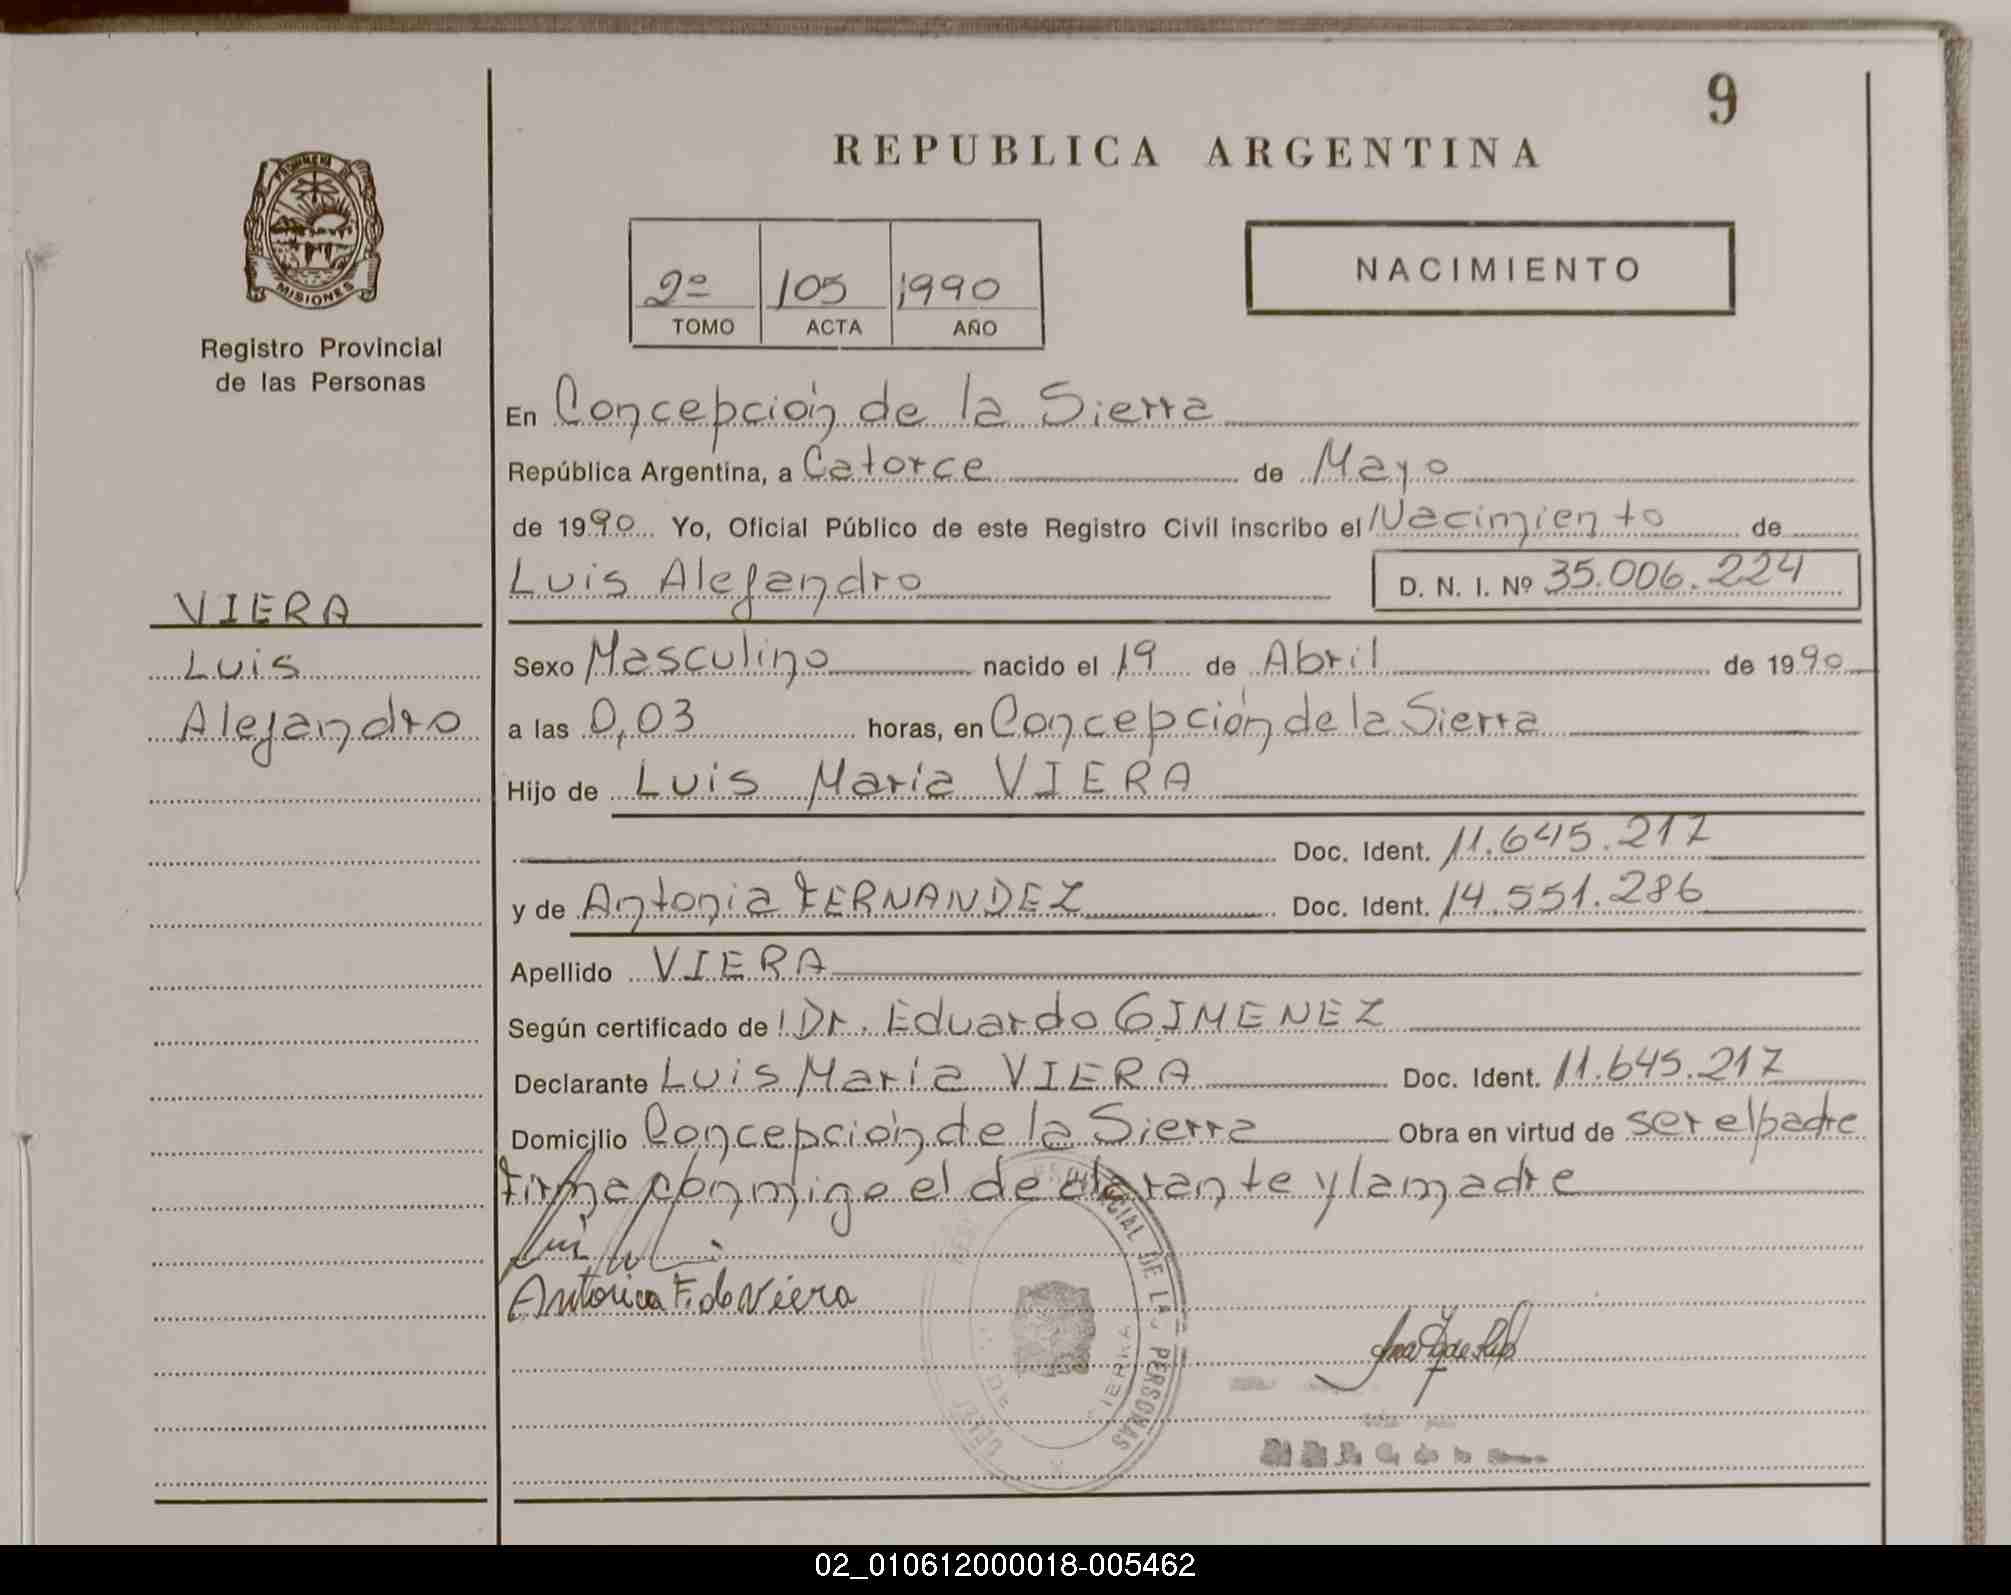 9
REPUBLICA ARGENTINA
PROVINCIA DE
MISIONES
Registro Provincial
de las Personas
2º 105 1990
TOMO ACTA AÑO
NACIMIENTO
En Concepción de la Sierra
República Argentina, a Catorce de Mayo
de 1990 Yo, Oficial Público de este Registro Civil inscribo el Nacimiento de
Luis Alejandro D. N. I. Nº 35.006.224
VIERA
Luis
Alejandro
Sexo Masculino nacido el 19 de Abril de 1990
a las 0,03 horas, en Concepción de la Sierra
Hijo de Luis María VIERA
Doc. Ident. 11.645.217
y de Antonia FERNANDEZ Doc. Ident. 14.551.286
Apellido VIERA
Según certificado de Dr. Eduardo GIMENEZ
Declarante Luis María VIERA Doc. Ident. 11.645.217
Domicilio Concepción de la Sierra Obra en virtud de ser el padre
Firma conmigo el declarante y la madre
Antonia F. de Viera
DE LAS PERSONAS
SIERRA
02_010612000018-005462